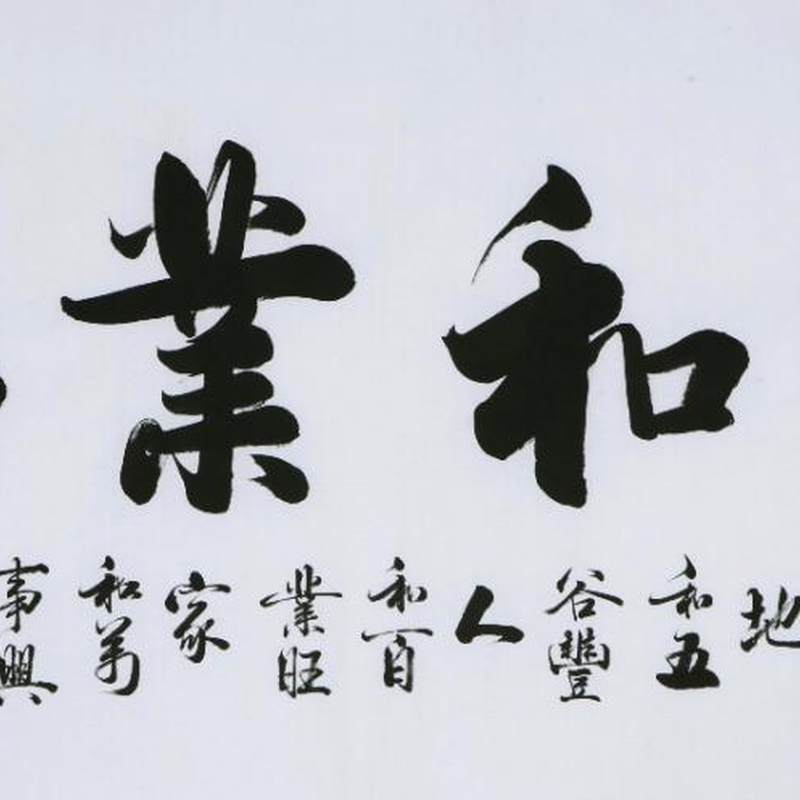 和業
地和五谷豐人和百業旺家和萬事興